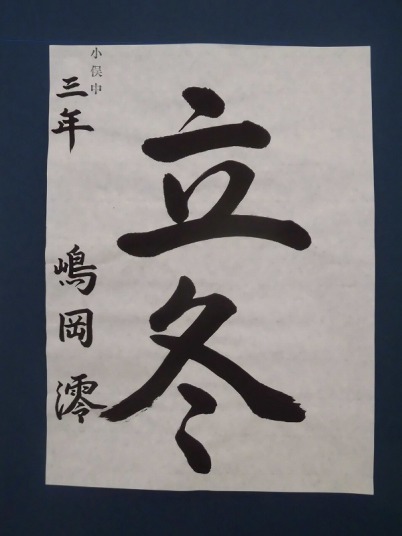 立冬
小俣中
三年 嶋岡 澪